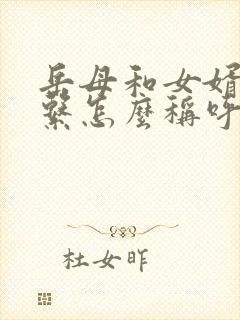 岳母和女婿
繫怎麼稱呼
杜女昨